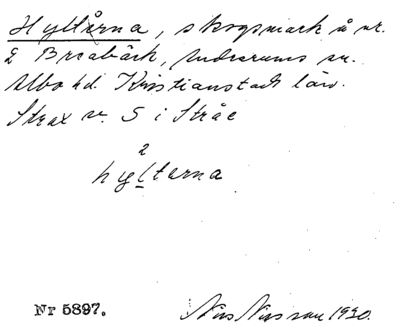 Hyltårna, skogsmark å nr.
2 Breabäck, Andrarums sn.
Albo hd. Kristianstads län.
Strax sr. S i Stråe
2
hylterna
Nr 5897. Nils Nilsson 1930.